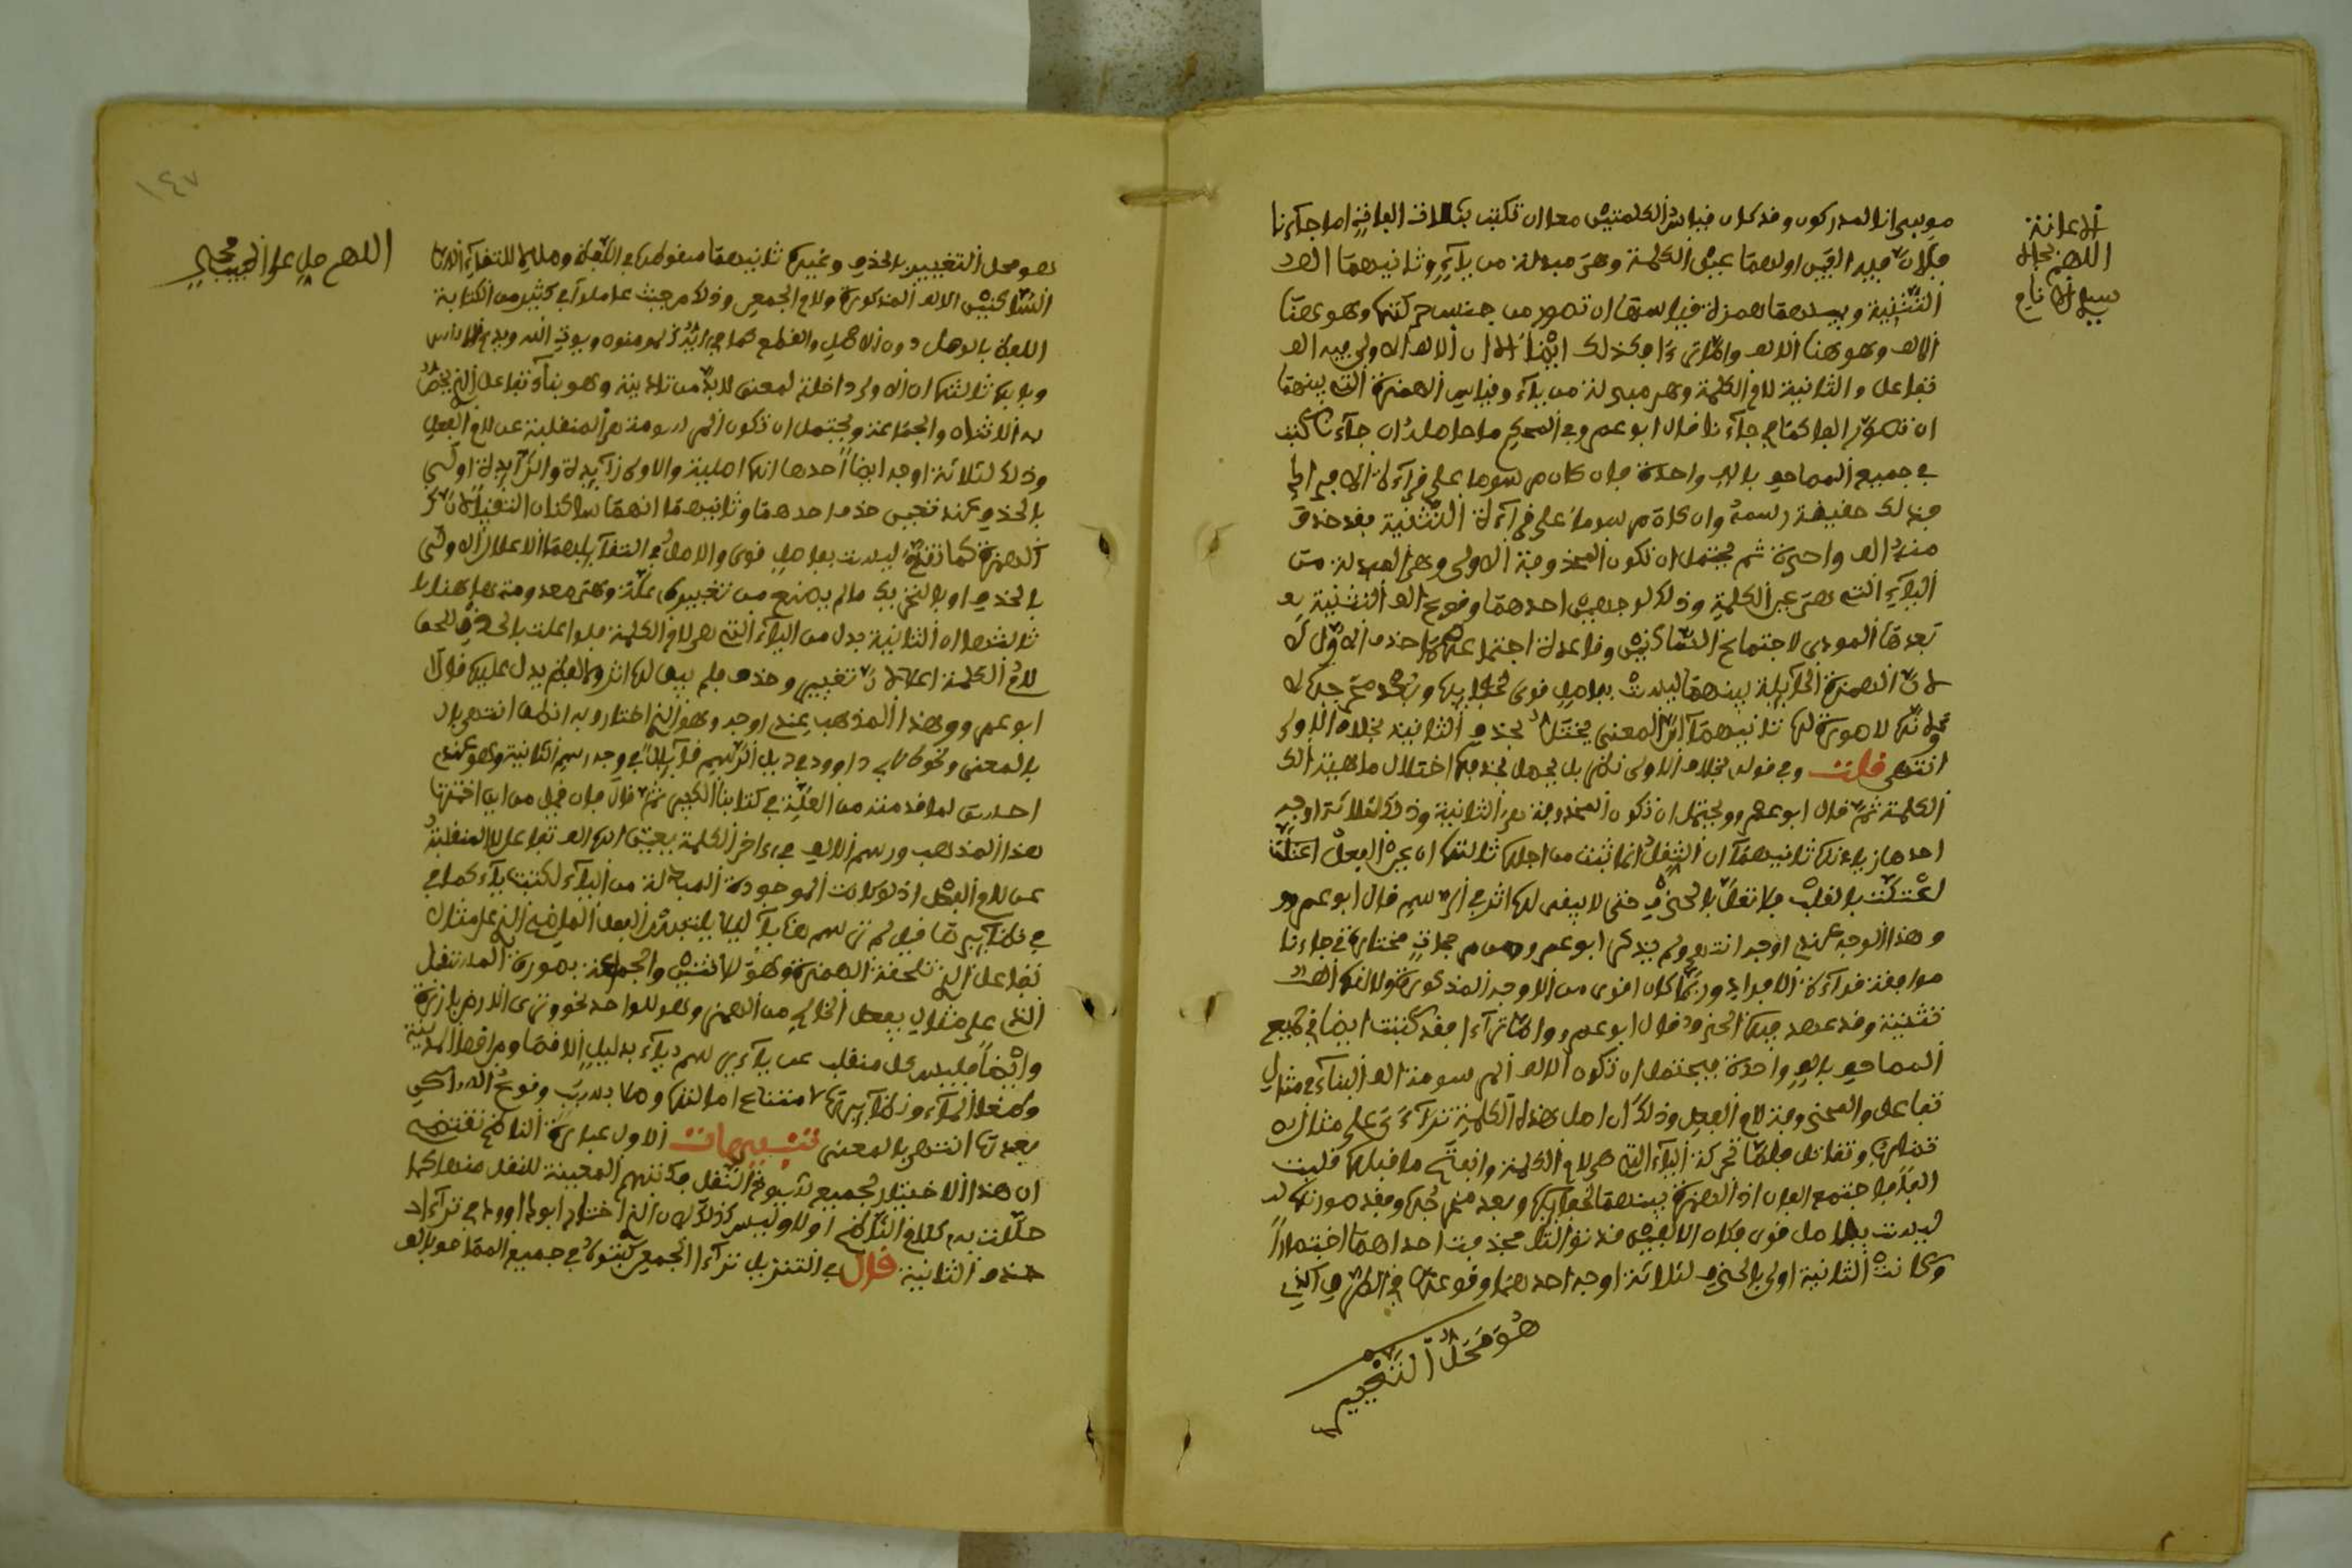 موسى انا لمدركون وقد كان قياس الكلمتين معا ان تكتب بثلاث الفات اما جاءنا
فلان فيه الفين اولاهما عين الكلمة وهي مبدلة من ياء وثانيهما الف
التثنية وبينهما همزة قياسها ان تصور من جنس حركتها وهو هنا
الالف وهو هنا الالف واما ترءا فكذلك ايضا الا ان الالف الاولى فيه الف
تفاعل والثانية لام الكلمة وهي مبدلة من ياء وقياس الهمزة التي بينهما
ان تصور الفا كما في جاءنا قال ابو عمرو في المحكم ما حاصله ان جاءنا كتب
في جميع المصاحف بالف واحدة فان كان مرسوما على قراءة الافراد
فذلك حقيقة رسمه وان كان مرسوما على قراءة التثنية فقد حذف
منه الف واحدة ثم يحتمل ان تكون المحذوفة الاولى وهي المبدلة من
الياء التي هي عين الكلمة وذلك لوجهين احدهما وقوع الف التثنية
بعدها المودي لاجتماع الساكنين وقاعدة اجتماعهما حذف الاول
لان الهمزة الحائلة بينهما ليست بفاصل قوي لخفائها وبعد مخرجها
ولانها لا صورة لها ثانيهما ان المعنى يختل بحذف الثانية بخلاف الاولى
انتهى قلت وفي قوله بخلاف الاولى نظر بل يحصل بحذفها اختلال ماهية
الكلمة ثم قال ابو عمرو ويحتمل ان تكون المحذوفة هي الثانية وذلك لثلاثة اوجه
احدها زيادتها ثانيهما ان الثقل انما ثبت من اجلها ثالثها ان عين الفعل اعتلت
اعتلت بالقلب فلا تعل بالحذف حتى لا يبقى لها اثر في الرسم قال ابو عمرو
وهذا الوجه عندي اوجه انتهى ولم يذكر ابو عمرو من مرجحات مختاره في جاءنا
موافقة قراءة الافراد وربما كان اقوى من الاوجه المذكورة ولانها الف
تثنية وقد عهد فيها الحذف وقال ابو عمرو واما ترءا فقد كتبت ايضا في جميع
المصاحف بالف واحدة فيحتمل ان تكون الالف المرسومة الف البناء في مثال
تفاعل والمحذوفة لام الفعل وذلك ان اصل هذه الكلمة تراءي على مثال
تضارب وتقاتل فلما تحركت الياء التي هي لام الكلمة وانفتح ما قبلها قلبت
الفا فاجتمع الفان اذ الهمزة بينهما لخفائها وبعد مخرجها وفقد صورتها
ليست بفاصل قوي فكان الالفين قد توالتا فحذفت احداهما اختصارا
وكانت الثانية اولى بالحذف لثلاثة اوجه احدها وقوعها في الطرف الذي
هو محل التغيير
الاعانة
اللهم بجاه
سيد الانام
١٤٧
اللهم صل على الحبيب محمد
هو محل التغيير بالحذف وغيره ثانيهما سقوطها في اللفظ وصلا للتقاء
الساكنين الالف المذكورة ولام الجمع وذلك من حيث عاملوا في كثير من الكتابة
اللفظ بالوصل دون الاصل والقطع كما في ايه المومنون ويوت الله ويدع الانسان
وبابه ثالثها ان الاولى داخلة لمعنى لا بد من تاديته وهو بناء تفاعل الذي يخص
به الاثنان والجماعة ويحتمل ان تكون المرسومة هي المنقلبة عن لام الفعل
وذلك لثلاثة اوجه ايضا احدها انها اصلية والاولى زائدة والزائدة اولى
بالحذف عند تعين حذف احدهما وثانيهما انهما ساكنان التقيا لان
الهمزة كما تقدم ليست بفاصل قوي والاصل في التقائهما الاعلال الاولى
بالحذف او بالتحريك ما لم يمنع من تغييرها علة وهي معدومة هاهنا
ثالثها ان الثانية بدل من الياء التي هي لام الكلمة فلو اعلت بالحذف للحق
لام الكلمة اعلالان تغيير وحذف فلم يبق لها اثر ولا لفظ يدل عليها قال
ابو عمرو وهذا المذهب عندي اوجه وهو الذي اختاره به انطق انتهى
بالمعنى ونحوه لابي داوود في ذيل الرسم قائلا في وجه رسم الثانية وهو عندي
احسن لما قدمته من العلة في كتابنا الكبير ثم قال فان قيل من اين اخترت
هذا المذهب ورسم الالف في اخر الكلمة يعين انها الف تفاعل لا المنقلبة
عن لام الفعل اذ لو كانت الموجودة المبدلة من الياء لكتبت ياء كما في
في نظائرها قيل لم ترسم هنا ياء ليلا يلتبس الفعل الماضي الذي على مثال
تفاعل الذي تلحقه الهمزة وهو للاثنين والجماعة بصورة المستقبل
الذي على مثال يفعل الخالي من الهمز وهو للواحد نحو وترى الارض بارزة
وايضا فليس كل منقلب عن ياء يرسم ياء بدليل الاقصا ومن اقصا المدينة
وطغا الماء ونظائرها لامتناع امالتها وما بدرت وقوع الساكن
بعدها انتهى بالمعنى تنبيهات الاول عبارة الناظم تقتضي
ان هذا الاختيار لجميع شيوخ النقل فانهم المعينة للنقل منه كما
حللت به كلام الناظم اولا وليس كذلك لان الذي اختاره ابو داوود في ترءا
حذف الثانية قال في التنزيل ترءا الجمعن كتبوه في جميع المصاحف بالف